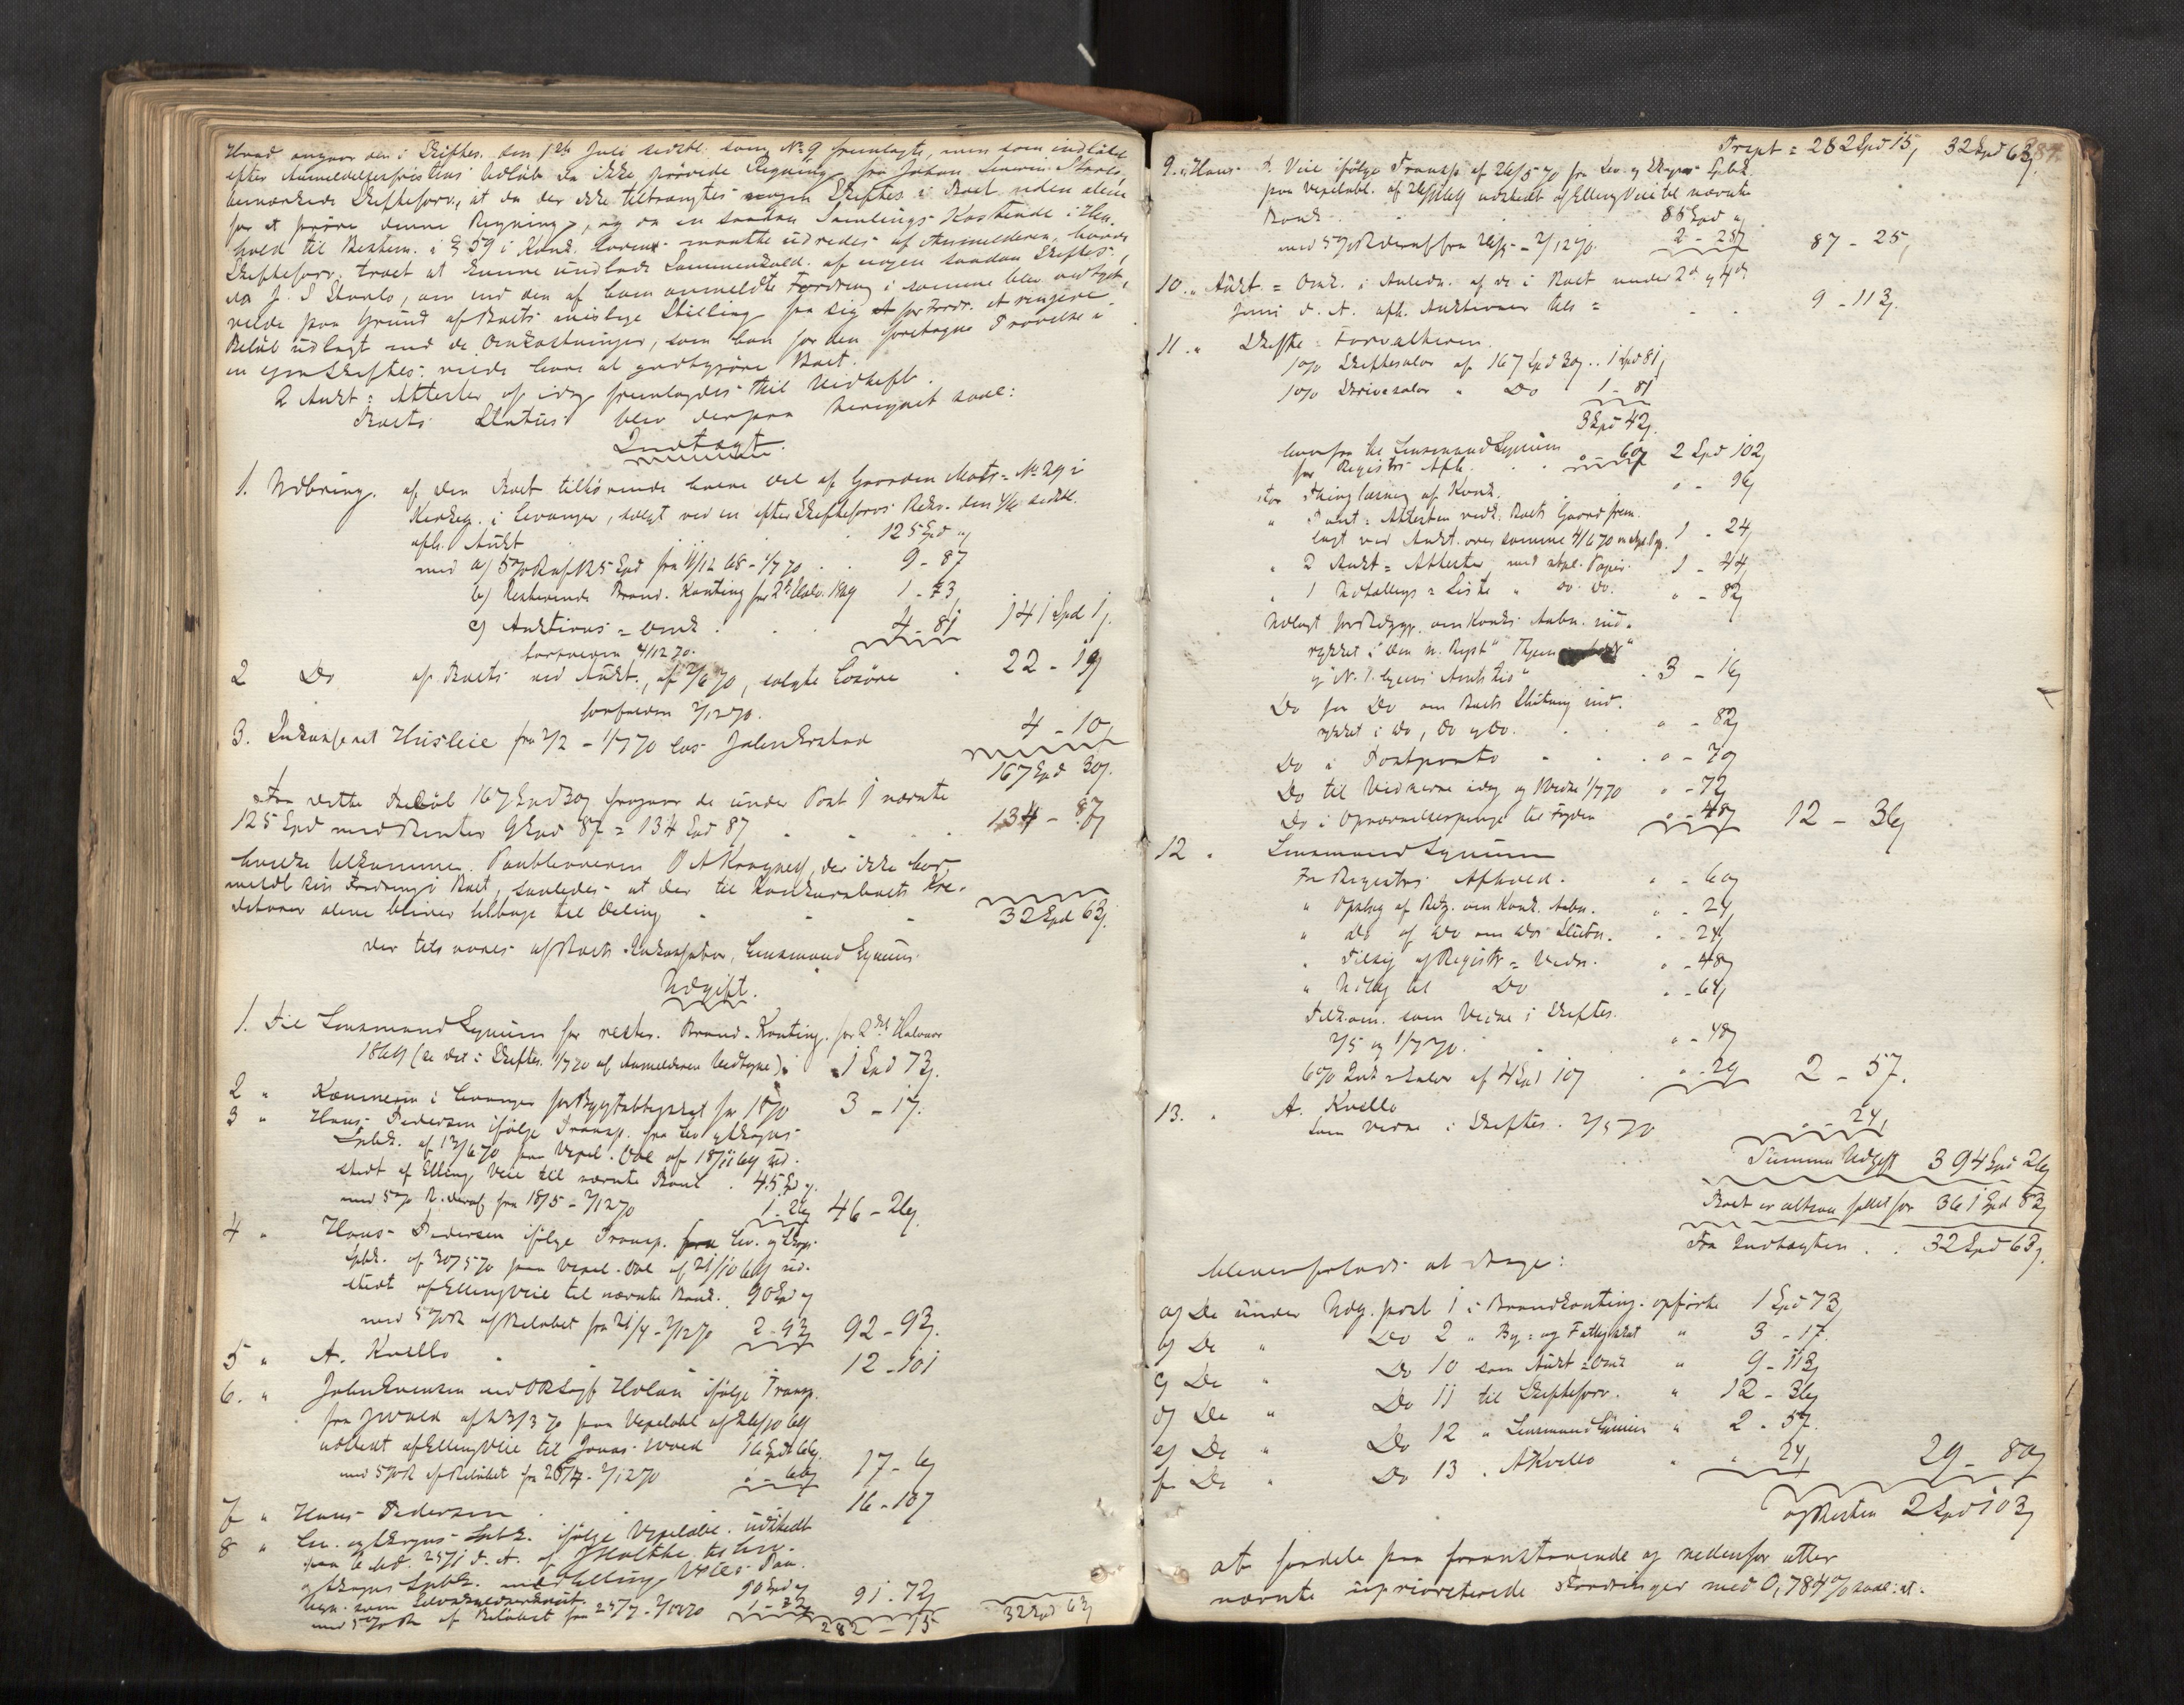 Hvad angaar den i Skiftes. den 1ste Juli sidstl. som No 9 fremlagte, men som indløbet
efter Anmeldelsesfristens Udløb da ikke prøvede Regning fra Johan Skarlo,
bemærkede Skifteforv., at da der ikke tiltrængtes nogen Skiftes. i Boet uden alene
for at prøve denne Regning, og da en saadan Samlings Kostende i Hen-
hold til Bestem. i § 59 i Konk. Loven maatte udredes af Anmelderen, havde
Skifteforv. troet at kunne undlade Sammenkald. af nogen saadan Skiftes.,
da J. S Skarlo, om end den af ham anmeldte Fordring i samme blev vedtaget,
vilde paa Grund af Boets mislige Stilling faa sig for Fordr. et ringere
Beløb udlagt end de Omkostninger, som han for den foretagne Prøvelse i
en egen Skiftes. vilde have at godtgjøre Boet.
2 Aukt = Attester af idag fremlagdes til Vedhæft.
Boets Status blev derpaa beregnet saal:
Indtægt.
1. Udbring. af den Boet tilhørende halve Del af Gaarden Matr = No 29 i
Kirkeg. i Levanger, solgt ved en efter Skifteforvs Rekv. den 4/6 sidstl.
afh. Aukt . 125 Spd "
med a) 5% R af 125 Spd fra 11/12 68 - 1/7 70 . . 9 - 87
b) Resterende Brand. Konting for 2det Halv. 1869 1 - 73
c) Auktions = Omk . . . 4 - 81 141 Spd 1
forfalden 4/12 70.
2 Do af Boets ved Aukt., af 2/6 70, solgte Løsøre . 22 - 19
forfalden 2/12 70.
3. Inkasseret Husleie fra 2/2 - 1/7 70 hos John 4 - 10
167 Spd 30
Fra dette Beløb 167 Spd 30 fragaar de under Post 1 nævnte
125 Spd med Renter 9 Spd 87 = 134 Spd 87 . . . . 134 - 87
hvilke tilkommer Panthaveren, der ikke har
meldt sin Fordring i Boet, saaledes at der til Konkursboets Kre-
ditorer alene bliver tilbage til Deling . . . 32 Spd 63
der tils vares af Boets Inkassator, Lensmand Lynum
Udgift.
1. Til Lensmand Lynum for rester. Brand-Konting. for 2det Halvaar
1869 (se det i Skiftes. 1/7 70 af Anmelderen Vedtagne). . 1 Spd 73
2 " Kæmneren i Levanger for By og Fattigskat for 1870 3 - 17.
3 " Hans Pedersen ifølge Transp. fra Lev og Skogns
Spbk. af 13/6 70 paa Vexel. Obl af 18/11 69 ud-
stedt af Elling Veie til nævnte Bank . 45 Spd "
med 5% R. deraf fra 18/5 - 2/12 70 1 - 26 46 - 26
4 " Hans Pedersen ifølge Transp. fra Lev. og Skogn
Spbk. af 30/5 70 paa Vexel-Obl af 21/10 69 ud-
stedt af Elling Veie til nævnte Bank. 90 Spd "
med 5% R af Beløbet fra 21/4 - 2/12 70 2 - 93 92 - 93
5 " A. Kvello . . 12 - 101
6. " John Svensen ifølge Transp.
fra J Wold af 23/3 70 paa Vexelobl af 26/10 69
udstedt af Elling Veie til Jonas Wold 16 Spd 66
med 5% R af Beløbet fra 26/4 - 2/12 70 " - 66 17 - 6
7 " Hans Pedersen . . 16 - 107
8 " Lev. og Skogns Spbk. ifølge Vexelobl. udstedt
paa 6 Md. 25/1 d. A. af J Holthe til Lev.
og Skogns Spbk. med Elling Veies Paa-
tegn. som Selvskyldnerkaut. 90 Spd "
med 5% R af Beløbet fra 25/7 - 2/12 70 1 - 72 91 - 72
282 - 15 32 Spd 63
Trspt = 282 Spd 15 32 Spd 63
9. " Hans P. Veie ifølge Transp af 26/5 70 fra Lev. og Skogns Spbk.
paa Vexelobl. af 26/11 69 udstedt af Elling Veie til nævnte
Bank . 85 Spd "
med 5% R deraf fra 26/5 - 2/12 70 2 - 25 87 - 25
10. " Aukt. = Omk. i Anledn. af de i Boet under 2d og 4de
Juni d. A. afh. Auktioner tils = . . 9 - 113
11. " Skifte = Forvalteren.
1% Skiftesalær af 167 Spd 30 . . 1 Spd 81
1% Skrivesalær " Do 1 - 81
3 Spd 42
herfra til Lensmand Lynum
for Registrs Afh. . . " - 60 2 Spd 102
for Thinglæsning af Konk. . " - 96
" Pant = Attesten vedk. Boets Gaard frem-
lagt ved Aukt. over samme 4/6 70 1 - 24
" 2 Aukt = Attester, med stpl. Papir. 1 - 44
" 1 Udtællings = Liste " Do. Do. " - 82
Udlagt for Bekjg. om Konks Aabn. ind-
rykket i "Den n. Rgst"
og "N. Thjems Amts Tid" . 3 - 16
Do for Do om Boets Slutning ind-
rykket i Do, Do og Do. . " - 82
Do i Postporto . . . " - 70
Do til Vidnerne idag og 1/7 70 " - 72
Do i Opnævnelsespenge til Fogden " - 48 12 - 36
12 . Lensmand Lynum
For Registrs Afhold. " - 60
" Opslag af Bekj. om Konk. Aabn. " - 24
" Do af Do om Dos Slutn. " - 24
. Tilsig. af Registr = Vidn. " - 48
" Udlæg til Do " - 64
Tilkom. som Vidne i Skiftes.
2/5 og 1/7 70. . " - 48
6% Ink = Salær af 4 Spd 10 . " - 29 2 - 57.
13. . A. Kvello
som Vidne i Skiftes. 2/5 70 " - 24
Summa Udgift 394 Spd 26
Boet er altsaa fallit for 361 Spd 83
Fra Indtægten . . 32 Spd 63
bliver forlods at drage:
a) De under Udg. post 1 i Brandkonting. opførte 1 Spd 73
b) De " Do 2 " By = og Fattigskat " 3 - 17.
c) De " Do 10 som Aukt = Omk " 9 - 113
d) De " Do 11 til Skifteforv. " 12 - 36
e) De " Do 12 " Lensmand Lynum " 2 - 57.
f De " Do 13 . A Kvello " " 24 29 - 80
og Resten 2 Spd 103
at fordele paa foranstaaende og nedenfor atter
nævnte uprioriterede Fordringer med 0,784% saal: at.